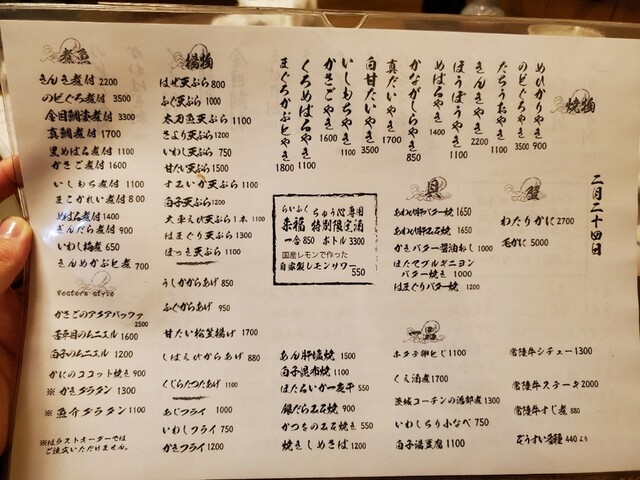 煮魚
きんき煮付 2200
のどぐろ煮付 3500
金目鯛煮付 3300
真鯛煮付 1700
黒めばる煮付 1100
かさご煮付 1600
いしもち煮付 1100
まこかれい煮付 800
めばる煮付 1400
ぎんだら煮付 900
いわし梅煮 650
きんめかぶと煮 700
Western style
かさごのアクアパッツァ 2500
舌平目のムニエル 1600
白子のムニエル 1200
かにのココット焼き 900
※かきグラタン 1300
※魚介グラタン 1100
※はラストオーダーでは
ご注文いただけません。
揚物
はぜ天ぷら 800
ふぐ天ぷら 1000
太刀魚天ぷら 1100
さより天ぷら 1200
いわし天ぷら 750
甘だい天ぷら 1500
すみいか天ぷら 1100
白子天ぷら 1200
大車えび天ぷら1本 1100
はまぐり天ぷら 1300
ほっき天ぷら 1100
うしがからあげ 850
ふぐからあげ 950
甘だい松笠揚げ 1700
しばえびからあげ 880
くじらたつたあげ 1100
あじフライ 1000
いわしフライ 750
かきフライ 1200
焼物
めひかりやき 900
のどぐろやき 3500
たちうおやき 1100
きんきやき 2200
ほうぼうやき 1100
めばるやき 1400
かながしらやき 850
真だいやき 1700
白甘だいやき 3500
いしもちやき 1100
かさごやき 1600
くろめばるやき 1100
まぐろかぶとやき 1800
二月二十四日
らいふく ちゅう心専用
来福 特別限定酒
一合 850 ボトル 3300
国産レモンで作った
自家製レモンサワー 550
貝
あわび肝バター焼 1650
あわび肝石焼 1650
かきバター醤油おし 1000
ほたてブルギニヨン
バター焼き 1000
はまぐりバター焼 1200
蟹
わたりがに 2700
毛がに 5000
あん肝塩焼 1500
白子昆布焼 1100
ほたるいか一夜干 550
銀だら石焼 900
かつをの石焼き 550
焼きしめさば 1200
ホタテ卵とじ 1100
くえ酒煮 1700
茨城コーチンの酒部煮 1300
いわしちり小なべ 750
白子湯豆腐 1100
常陸牛シチュー 1300
常陸牛ステーキ 2000
常陸牛すじ煮 880
ぞうすい各種 440より